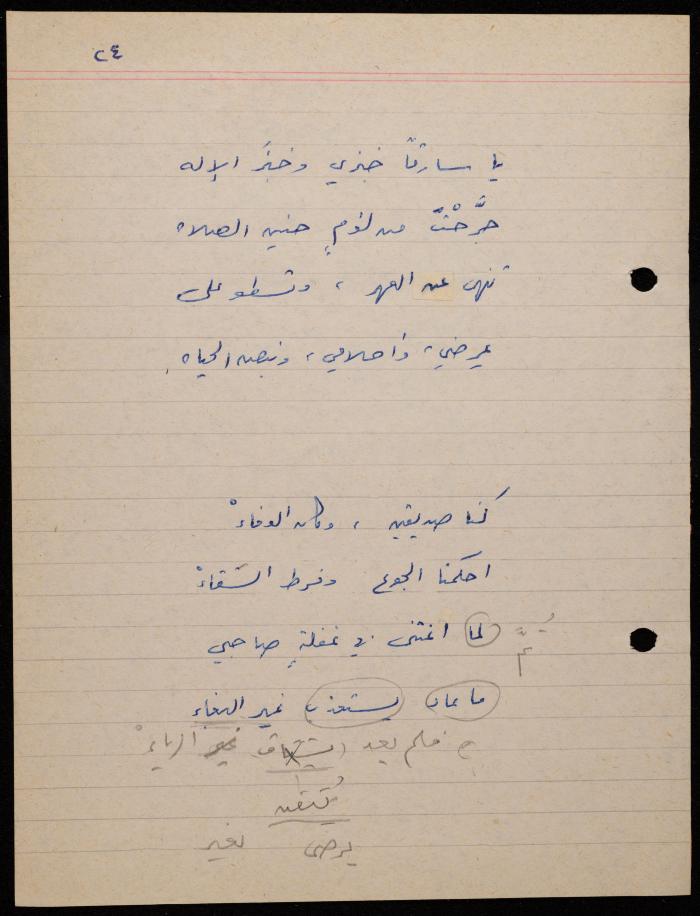 ٢٤
يا سارقاً خبزي وخبزَ الإله
جرَّحْتَ من لؤمٍ حنين الصلاه
تنهى عن العهر ، وتسطو على
عرضي ، وأحلامي ، ونبض الحياه .
كنا صديقين ، وكان الوفاءْ
احكمنا الجوع وفرط الشَقاءْ
لما اغتنى في غفلةٍ صاحبي
ما عاد يستعذب غير البغاء
فلم يعد غير الرياءْ
يُتقن
يرضى بغير